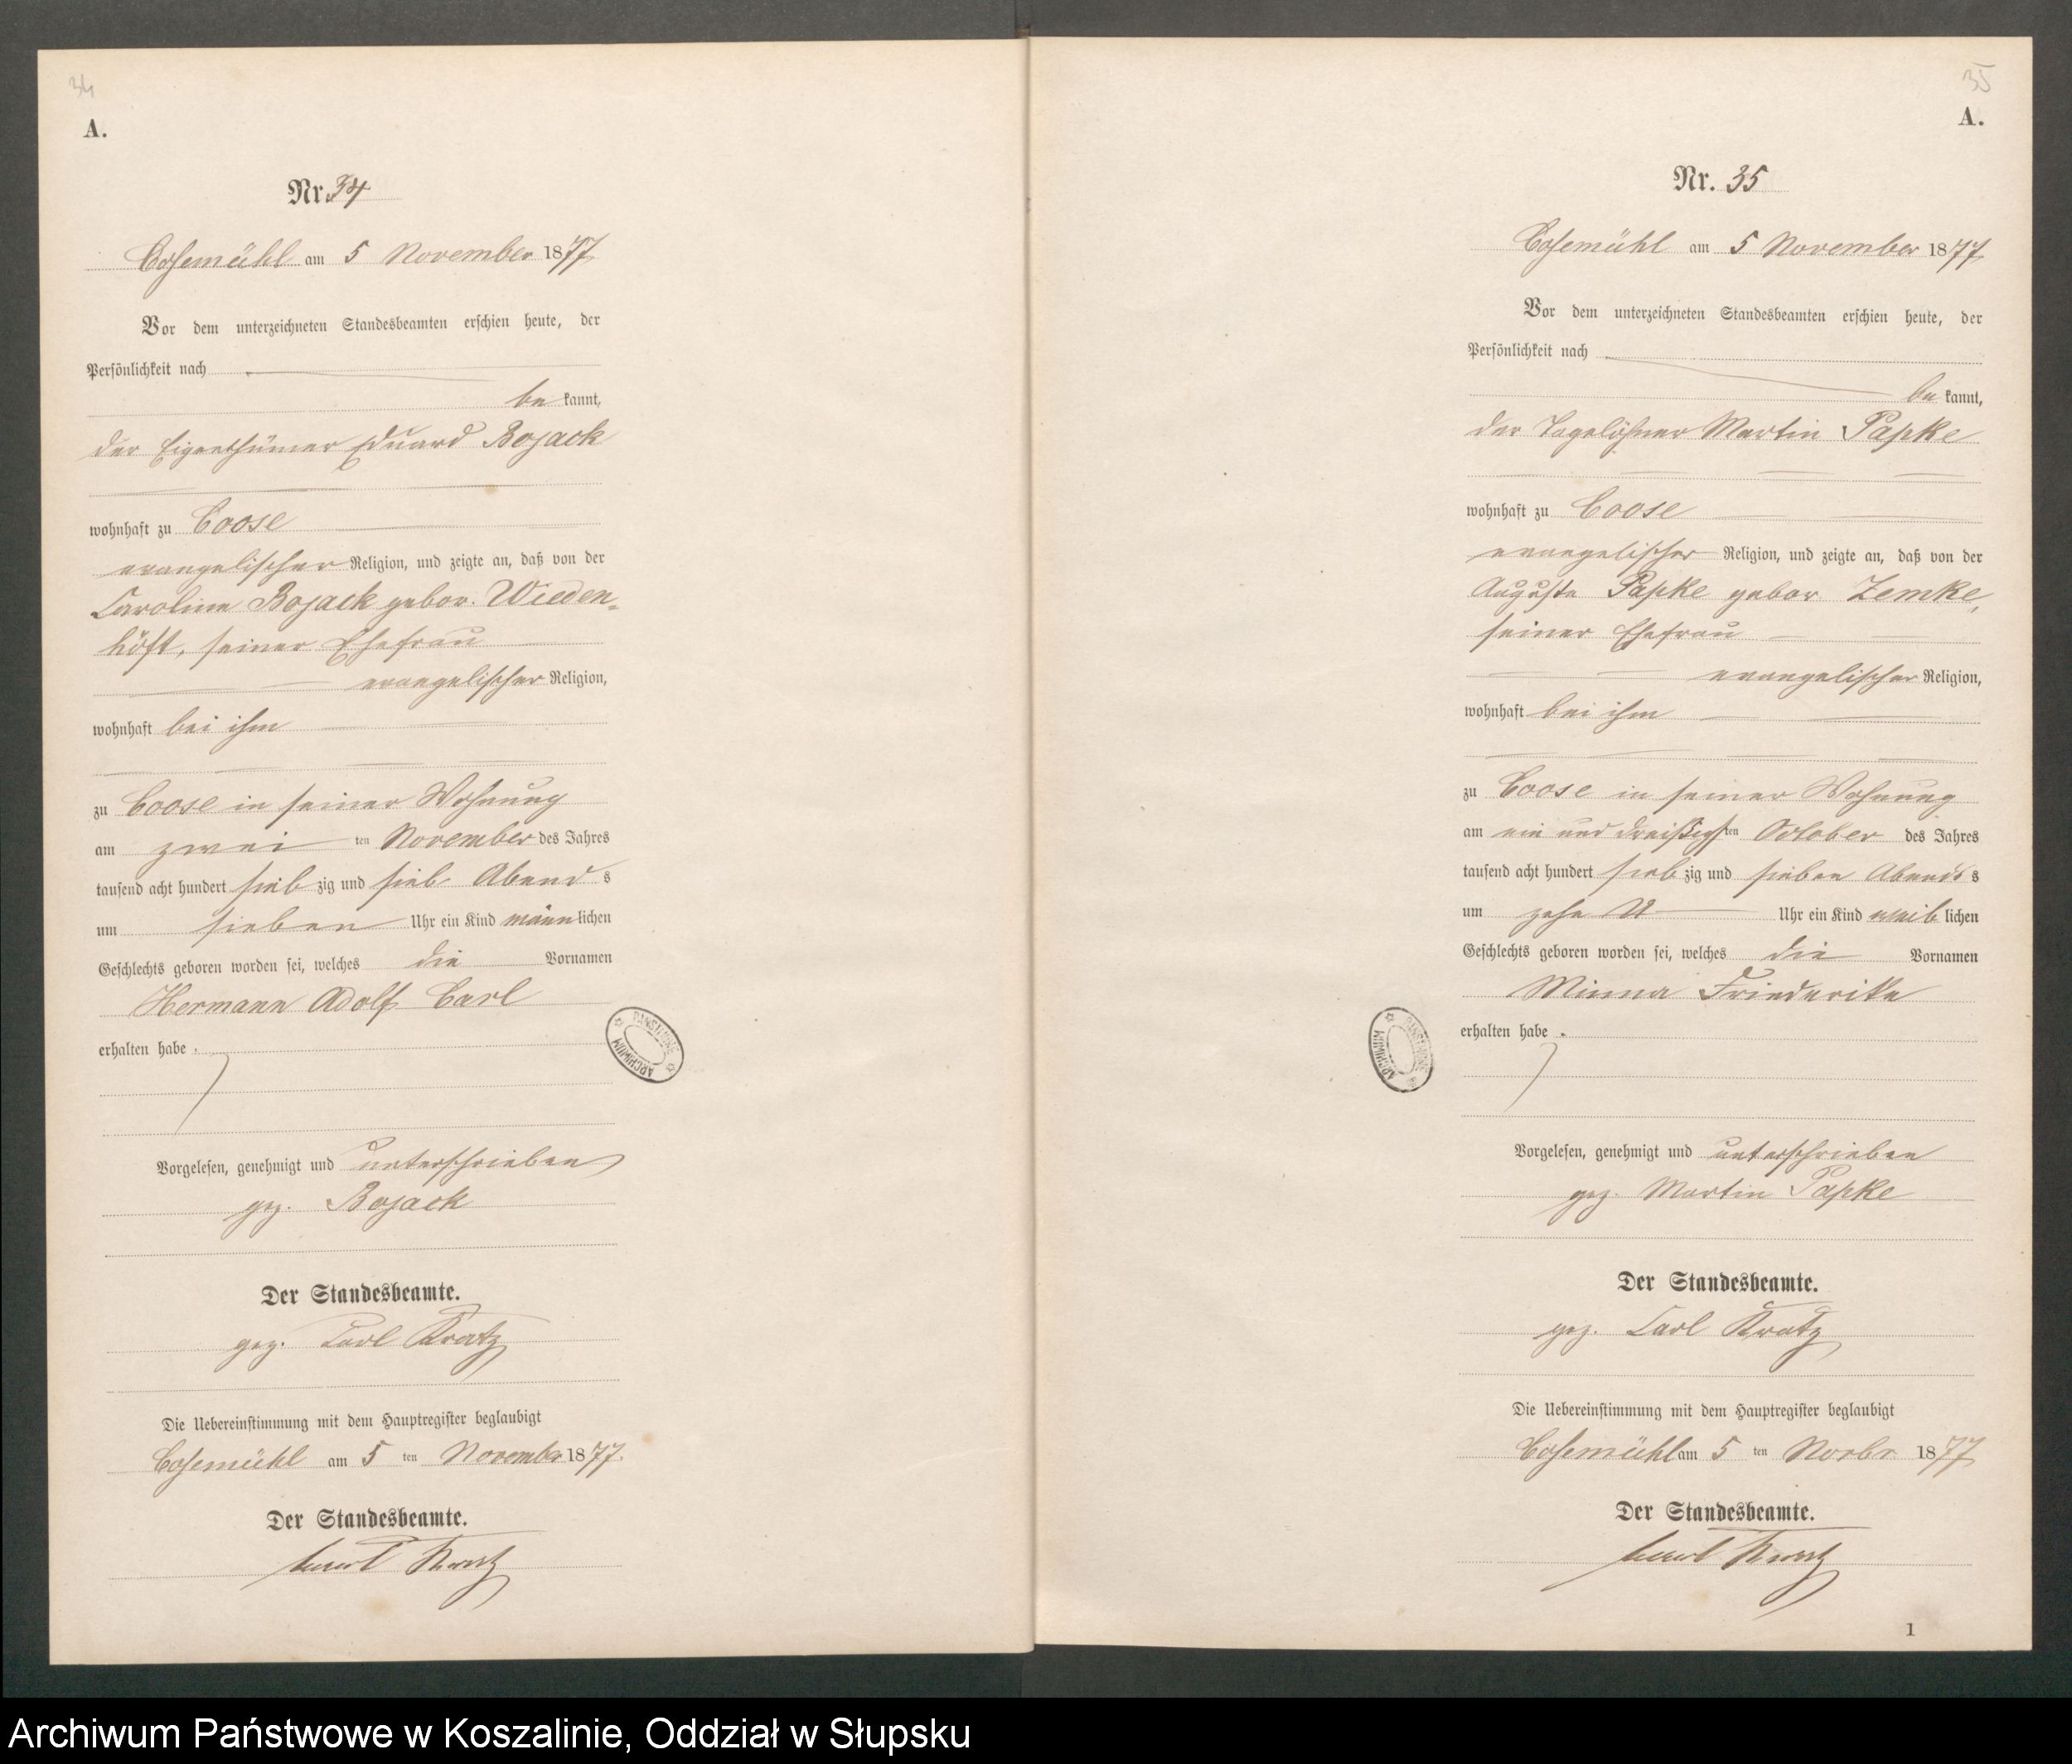 34
A.
Nr. 34
Cosemühl am 5 November 1877
Vor dem unterzeichneten Standesbeamten erschien heute, der
Persönlichkeit nach
be kannt,
der Eigenthümer Eduard Bojack
wohnhaft zu Coose
evangelischer Religion, und zeigte an, daß von der
Caroline Bojack gebor. Wieden-
höft, seiner Ehefrau
evangelischer Religion,
wohnhaft bei ihm
zu Coose in seiner Wohnung
am zwei ten November des Jahres
tausend acht hundert sieb zig und sieb Abend s
um sieben Uhr ein Kind männlichen
Geschlechts geboren worden sei, welches die Vornamen
Hermann Adolf Carl
erhalten habe.
Vorgelesen, genehmigt und unterschrieben
gez. Bojack
Der Standesbeamte.
gez. Carl Kratz
Die Uebereinstimmung mit dem Hauptregister beglaubigt
Cosemühl am 5 ten Novembr 1877.
Der Standesbeamte.
Carl Kratz
35
A.
Nr. 35
Cosemühl am 5 November 1877
Vor dem unterzeichneten Standesbeamten erschien heute, der
Persönlichkeit nach
be kannt,
der Tagelöhner Martin Papke
wohnhaft zu Coose
evangelischer Religion, und zeigte an, daß von der
Auguste Papke gebor Zemke,
seiner Ehefrau
evangelischer Religion,
wohnhaft bei ihm
zu Coose in seiner Wohnung
am ein und dreißigsten October des Jahres
tausend acht hundert sieb zig und sieben Abends s
um zehn U Uhr ein Kind weib lichen
Geschlechts geboren worden sei, welches die Vornamen
Minna Friederike
erhalten habe.
Vorgelesen, genehmigt und unterschrieben
gez. Martin Papke
Der Standesbeamte.
gez. Carl Kratz
Die Uebereinstimmung mit dem Hauptregister beglaubigt
Cosemühl am 5 ten Novbr 1877
Der Standesbeamte.
Carl Kratz
1
ARCHIWUM PAŃSTWOWE
ARCHIWUM PAŃSTWOWE
Archiwum Państwowe w Koszalinie, Oddział w Słupsku